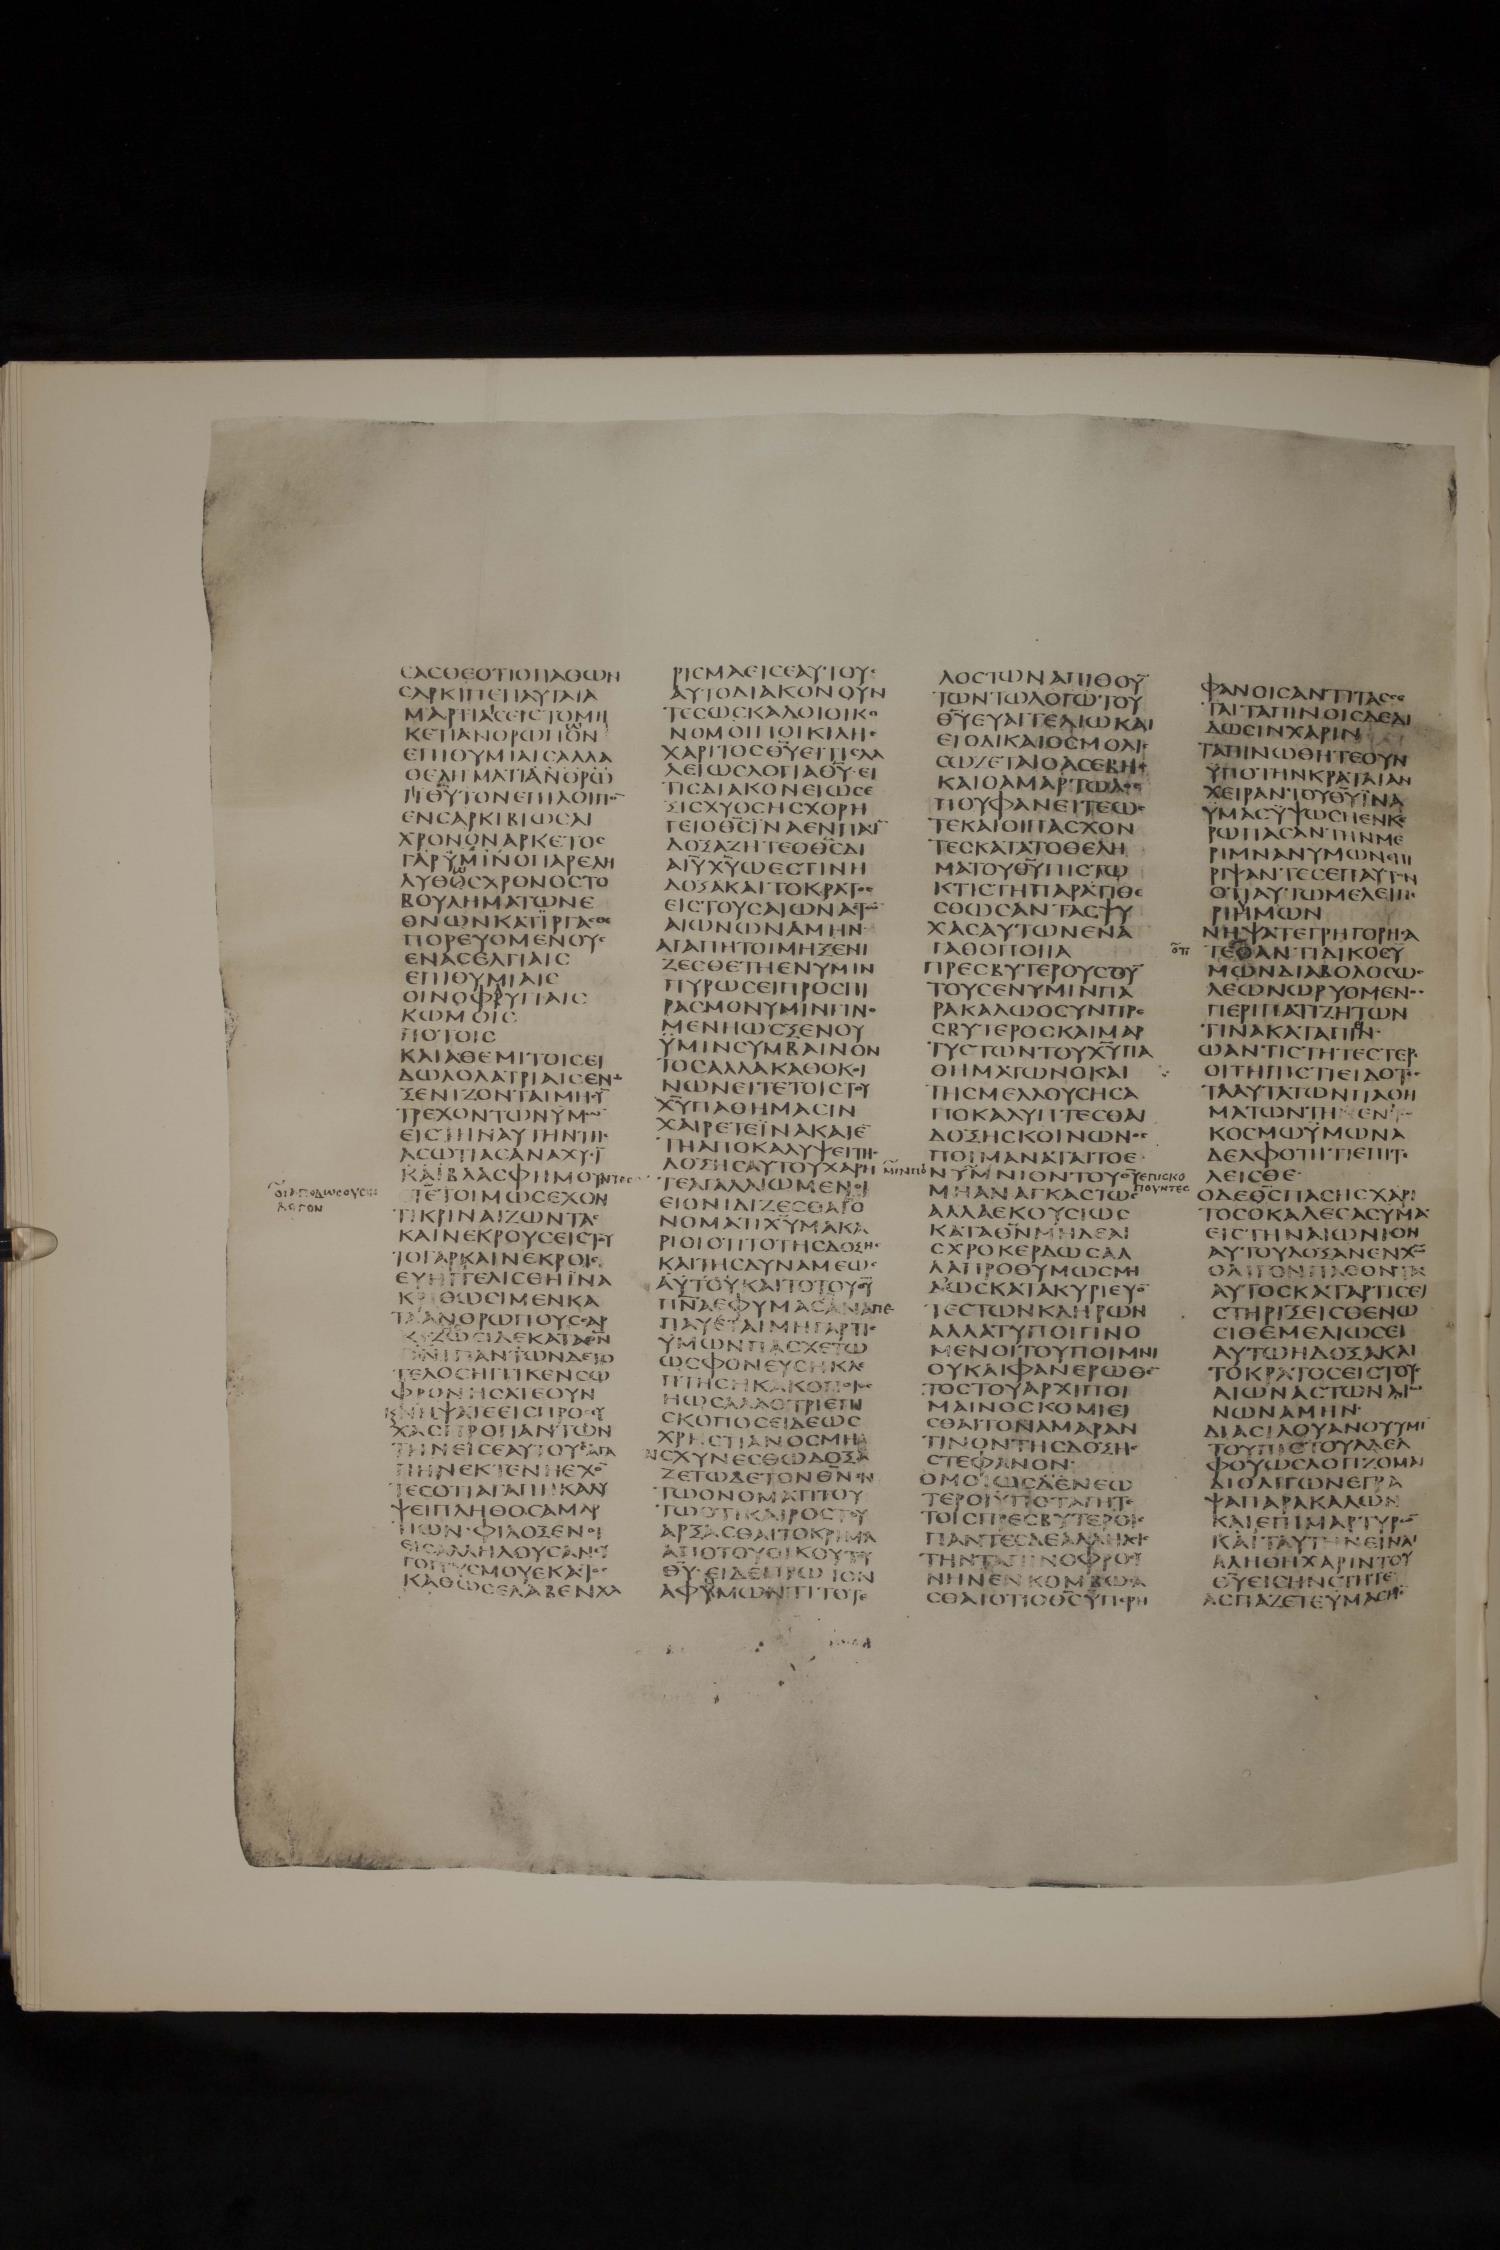 ϹΑϹΘΕΟΤΙΟΠΑΘΩΝ
ϹΑΡΚΙΠΕΠΑΥΤΑΙΑ
ΜΑΡΤΙΑϹΕΙϹΤΟΜΗ
ΚΕΤΙΑΝΘΡΩΠΩΝ
ΕΠΙΘΥΜΙΑΙϹΑΛΛΑ
ΘΕΛΗΜΑΤΙΑΝΘΡΩ
ΠΙΘΥΤΟΝΕΠΙΛΟΙΠΟ
ΕΝϹΑΡΚΙΒΙΩϹΑΙ
ΧΡΟΝΟΝΑΡΚΕΤΟϹ
ΓΑΡΥΜΙΝΟΠΑΡΕΛΗ
ΛΥΘΩϹΧΡΟΝΟϹΤΟ
ΒΟΥΛΗΜΑΤΩΝΕ
ΘΝΩΝΚΑΤΙΡΓΑϹΘΕ
ΠΟΡΕΥΟΜΕΝΟΥϹ
ΕΝΑϹΕΛΓΙΑΙϹ
ΕΠΙΘΥΜΙΑΙϹ
ΟΙΝΟΦΡΥΓΙΑΙϹ
ΚΩΜΟΙϹ
ΠΟΤΟΙϹ
ΚΑΙΑΘΕΜΙΤΟΙϹΕΙ
ΔΩΛΟΛΑΤΡΙΑΙϹΕΝΩ
ΞΕΝΙΖΟΝΤΑΙΜΗϹΥ
ΤΡΕΧΟΝΤΩΝΥΜΩ
ΕΙϹΤΗΝΑΥΤΗΝΤΗϹ
ΑϹΩΤΙΑϹΑΝΑΧΥϹΙ
ΚΑΙΒΛΑϹΦΗΜΟΥΝΤΕϹ
ΟΙΑΠΟΔΩϹΟΥϹΙΝ
ΛΟΓΟΝ
ΤΕΤΟΙΜΩϹΕΧΟΝ
ΤΙΚΡΙΝΑΙΖΩΝΤΑϹ
ΚΑΙΝΕΚΡΟΥϹΕΙϹΤΥ
ΤΟΓΑΡΚΑΙΝΕΚΡΟΙϹ
ΕΥΗΓΓΕΛΙϹΘΗΪΝΑ
ΚΡΙΘΩϹΙΜΕΝΚΑ
ΤΑΑΝΘΡΩΠΟΥϹϹΑΡ
ΚΙΖΩϹΙΔΕΚΑΤΑΘΝ
ΠΝΙΠΑΝΤΩΝΔΕΤΟ
ΤΕΛΟϹΗΓΓΙΚΕΝϹΩ
ΦΡΟΝΗϹΑΤΕΟΥΝ
ΚΝΗΨΑΤΕΕΙϹΠΡΟϹΕΥ
ΧΑϹΠΡΟΠΑΝΤΩΝ
ΤΗΝΕΙϹΕΑΥΤΟΥϹΑΓΑ
ΠΗΝΕΚΤΕΝΗΕΧΟ
ΤΕϹΟΤΙΑΓΑΠΗΚΑΛΥ
ΨΕΙΠΛΗΘΟϹΑΜΑΡ
ΤΙΩΝ·ΦΙΛΟΞΕΝΟΙ
ΕΙϹΑΛΛΗΛΟΥϹΑΝΕΥ
ΓΟΓΓΥϹΜΟΥΕΚΑϹΤΟϹ
ΚΑΘΩϹΕΛΑΒΕΝΧΑ
ΡΙϹΜΑΕΙϹΕΑΥΤΟΥϹ
ΑΥΤΟΔΙΑΚΟΝΟΥΝ
ΤΕϹΩϹΚΑΛΟΙΟΙΚΟ
ΝΟΜΟΙΠΟΙΚΙΛΗϹ
ΧΑΡΙΤΟϹΘΥΕΙΤΙϹΛΑ
ΛΕΙΩϹΛΟΓΙΑΘΥ·ΕΙ
ΤΙϹΔΙΑΚΟΝΕΙΩϹΕ
ΞΙϹΧΥΟϹΗϹΧΟΡΗ
ΓΕΙΟΘϹΪΝΑΕΝΠΑϹΙ
ΔΟΞΑΖΗΤΕΟΘϹΔΙ
ΑΙΥΧΥΩΕϹΤΙΝΗ
ΔΟΞΑΚΑΙΤΟΚΡΑΤΟϹ
ΕΙϹΤΟΥϹΑΙΩΝΑϹΤΩ
ΑΙΩΝΩΝΑΜΗΝ·
ΑΓΑΠΗΤΟΙΜΗΞΕΝΙ
ΖΕϹΘΕΤΗΕΝΥΜΙΝ
ΠΥΡΩϹΕΙΠΡΟϹΠΙ
ΡΑϹΜΟΝΥΜΙΝΓΙΝΟ
ΜΕΝΗΩϹΞΕΝΟΥ
ΥΜΙΝϹΥΜΒΑΙΝΟΝ
ΤΟϹΑΛΛΑΚΑΘΟΚΟΙ
ΝΩΝΕΙΤΕΤΟΙϹΤΟΥ
ΧΥΠΑΘΗΜΑϹΙΝ
ΧΑΙΡΕΤΕΪΝΑΚΑΙΕ
ΤΗΑΠΟΚΑΛΥΨΕΙΤΗϹ
ΔΟΞΗϹΑΥΤΟΥΧΑΡΗ
ΤΕΑΓΑΛΛΙΩΜΕΝΟΙ
ΕΙΟΝΙΔΙΖΕϹΘΑΙΓΟ
ΝΟΜΑΤΙΧΥΜΑΚΑ
ΡΙΟΙΟΤΙΤΟΤΗϹΔΟΞΗϹ
ΚΑΙΤΗϹΔΥΝΑΜΕΩϹ
ΑΥΤΟΥΚΑΙΤΟΤΟΥΘΥ
ΠΝΑΕΦΥΜΑϹΑΝΑΠΕ
ΠΑΥΕΤΑΙΜΗΓΑΡΤΙϹ
ΥΜΩΝΠΑϹΧΕΤΩ
ΩϹΦΟΝΕΥϹΗΚΛΕ
ΠΤΗϹΗΚΑΚΟΠΟΙΟϹ
ΗΩϹΑΛΛΟΤΡΙΕΠΙ
ϹΚΟΠΟϹΕΙΔΕΩϹ
ΧΡΗϹΤΙΑΝΟϹΜΗΑ
ΙϹΧΥΝΕϹΘΩΔΟΞΑ
ΖΕΤΩΔΕΤΟΝΘΝΕΝ
ΤΩΟΝΟΜΑΤΙΤΟΥ
ΤΩΟΤΙΚΑΙΡΟϹΤΟΥ
ΑΡΞΑϹΘΑΙΤΟΚΡΙΜΑ
ΑΠΟΤΟΥΟΙΚΟΥΤΟΥ
ΘΥ·ΕΙΔΕΠΡΩΤΟΝ
ΑΦΥΜΩΝΤΙΤΟΤΕ
ΛΟϹΤΩΝΑΠΙΘΟΥ
ΤΩΝΤΩΛΟΓΩΤΟΥ
ΘΥΕΥΑΓΓΕΛΙΩΚΑΙ
ΕΙΟΔΙΚΑΙΟϹΜΟΛΙϹ
ϹΩΖΕΤΑΙΟΑϹΕΒΗϹ
ΚΑΙΟΑΜΑΡΤΩΛΟϹ
ΠΟΥΦΑΝΕΙΤΕΩϹ
ΤΕΚΑΙΟΙΠΑϹΧΟΝ
ΤΕϹΚΑΤΑΤΟΘΕΛΗ
ΜΑΤΟΥΘΥΠΙϹΤΩ
ΚΤΙϹΤΗΠΑΡΑΤΙΘΕ
ϹΘΩϹΑΝΤΑϹΨΥ
ΧΑϹΑΥΤΩΝΕΝΑ
ΓΑΘΟΠΟΙΙΑ
ΠΡΕϹΒΥΤΕΡΟΥϹΟΥ
ΤΟΥϹΕΝΥΜΙΝΠΑ
ΡΑΚΑΛΩΟϹΥΝΠΡΕ
ϹΒΥΤΕΡΟϹΚΑΙΜΑΡ
ΤΥϹΤΩΝΤΟΥΧΥΠΑ
ΘΗΜΑΤΩΝΟΚΑΙ
ΤΗϹΜΕΛΛΟΥϹΗϹΑ
ΠΟΚΑΛΥΠΤΕϹΘΑΙ
ΔΟΞΗϹΚΟΙΝΩΝΟϹ
ΠΟΙΜΑΝΑΤΑΙΤΟΕ
ΝΥΜΝΙΟΝΤΟΥΘΥΕΠΙϹΚΟ
ΠΟΥΝΤΕϹ
ΜΗΑΝΑΓΚΑϹΤΩϹ
ΑΛΛΑΕΚΟΥϹΙΩϹ
ΚΑΤΑΘΝΜΗΔΕΑΙ
ϹΧΡΟΚΕΡΔΩϹΑΛ
ΛΑΠΡΟΘΥΜΩϹΜΗ
ΔΩϹΚΑΤΑΚΥΡΙΕΥΟ
ΤΕϹΤΩΝΚΛΗΡΩΝ
ΑΛΛΑΤΥΠΟΙΓΙΝΟ
ΜΕΝΟΙΤΟΥΠΟΙΜΝΙ
ΟΥΚΑΙΦΑΝΕΡΩΘΕ
ΤΟϹΤΟΥΑΡΧΙΠΟΙ
ΜΑΙΝΟϹΚΟΜΙΕΙ
ϹΘΑΙΤΟΝΑΜΑΡΑΝ
ΤΙΝΟΝΤΗϹΔΟΞΗϹ
ϹΤΕΦΑΝΟΝ·
ΟΜΟΙΩϹΔΕΝΕΩ
ΤΕΡΟΙΥΠΟΤΑΓΗΤΕ
ΤΟΙϹΠΡΕϹΒΥΤΕΡΟΙϹ
ΠΑΝΤΕϹΔΕΑΛΛΗΛΟΙϹ
ΤΗΝΤΑΠΙΝΟΦΡΟϹΥ
ΝΗΝΕΝΚΟΜΒΩϹΑ
ϹΘΑΙΟΤΙΟΘϹΥΠΕΡΗ
ΦΑΝΟΙϹΑΝΤΙΤΑϹϹΕ
ΤΑΙΤΑΠΙΝΟΙϹΔΕΔΙ
ΔΩϹΙΝΧΑΡΙΝ
ΤΑΠΙΝΩΘΗΤΕΟΥΝ
ΥΠΟΤΗΝΚΡΑΤΑΙΑΝ
ΧΕΙΡΑΝΤΟΥΘΥΪΝΑ
ΥΜΑϹΥΨΩϹΗΕΝΚΕ
ΡΩΠΑϹΑΝΤΗΝΜΕ
ΡΙΜΝΑΝΥΜΩΝΕΠΙ
ΡΙΨΑΝΤΕϹΕΠΑΥΤΝ
ΟΤΙΑΥΤΩΜΕΛΕΙΠΕ
ΡΙΗΜΩΝ
ΝΗΨΑΤΕΓΡΗΓΟΡΗϹΑ
ΟΤΙ
ΤΕΟΑΝΤΙΔΙΚΟϹΥ
ΜΩΝΔΙΑΒΟΛΟϹΩϹ
ΛΕΩΝΩΡΥΟΜΕΝΟϹ
ΠΕΡΙΠΑΤΙΖΗΤΩΝ
ΤΙΝΑΚΑΤΑΠΙΝ·
ΩΑΝΤΙϹΤΗΤΕϹΤΕΡΕ
ΟΙΤΗΠΙϹΤΙΕΙΔΟΤΕϹ
ΤΑΑΥΤΑΤΩΝΠΑΘΗ
ΜΑΤΩΝΤΗΕΝΤΩ
ΚΟϹΜΩΥΜΩΝΑ
ΔΕΛΦΟΤΗΤΙΕΠΙΤΕ
ΛΕΙϹΘΕ·
ΟΔΕΘϹΠΑϹΗϹΧΑΡΙ
ΤΟϹΟΚΑΛΕϹΑϹΥΜΑ
ΕΙϹΤΗΝΑΙΩΝΙΟΝ
ΑΥΤΟΥΔΟΞΑΝΕΝΧΩ
ΟΛΙΓΟΝΠΑΘΟΝΤΑϹ
ΑΥΤΟϹΚΑΤΑΡΤΙϹΕΙ
ϹΤΗΡΙΞΕΙϹΘΕΝΩ
ϹΙΘΕΜΕΛΙΩϹΕΙ
ΑΥΤΩΗΔΟΞΑΚΑΙ
ΤΟΚΡΑΤΟϹΕΙϹΤΟΥϹ
ΑΙΩΝΑϹΤΩΝΑΙΩ
ΝΩΝΑΜΗΝ·
ΔΙΑϹΙΛΟΥΑΝΟΥΥΜΙ
ΤΟΥΠΙϹΤΟΥΑΔΕΛ
ΦΟΥΩϹΛΟΓΙΖΟΜΑΙ
ΔΙΟΛΙΓΩΝΕΓΡΑ
ΨΑΠΑΡΑΚΑΛΩΝ
ΚΑΙΕΠΙΜΑΡΤΥΡΩ
ΚΑΙΤΑΥΤΗΝΕΙΝΑΙ
ΑΛΗΘΗΧΑΡΙΝΤΟΥ
ΘΥΕΙϹΗΝϹΤΗΤΕ
ΑϹΠΑΖΕΤΕΥΜΑϹΗ